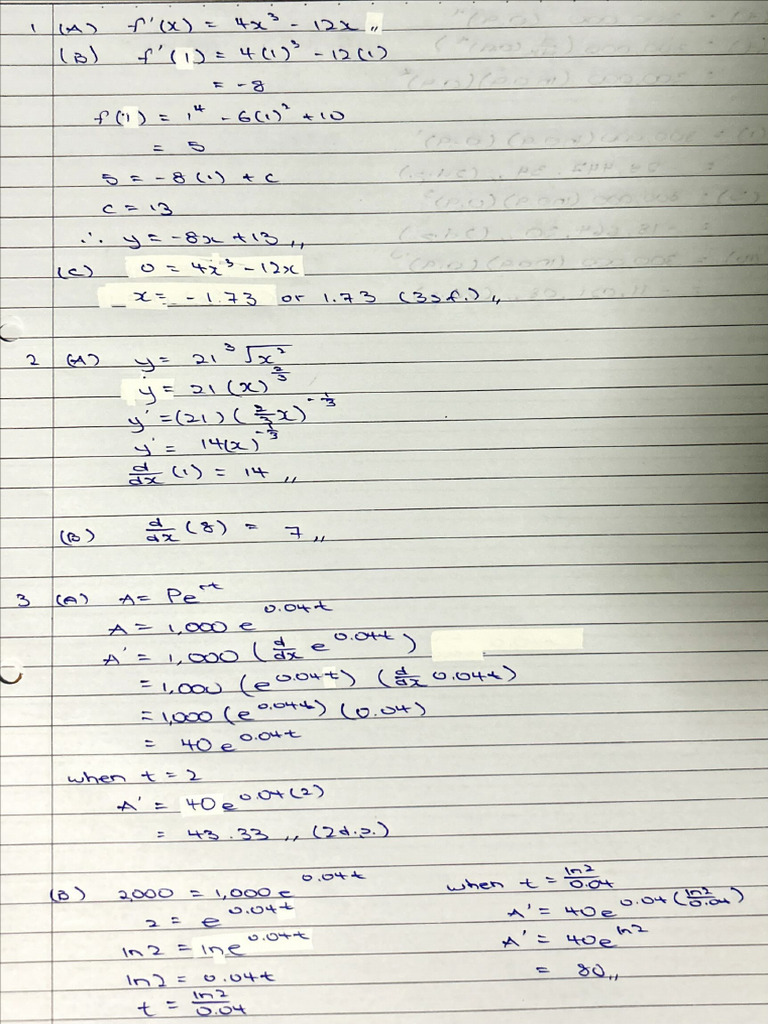 1 (A) f'(x) = 4x³ - 12x,,
(B) f'(1) = 4(1)³ - 12(1)
= -8
f(1) = 1⁴ - 6(1)² + 10
= 5
5 = -8(1) + c
c = 13
∴ y = -8x + 13,,
(C) 0 = 4x³ - 12x
x = -1.73 or 1.73 (3sf.),,
2 (A) y = 21 ³√x²
y = 21(x)^(2/3)
y' = (21)(2/3 x)^(-1/3)
y' = 14(x)^(-1/3)
d/dx (1) = 14,,
(B) d/dx (8) = 7,,
3 (A) A = Pe^(rt)
A = 1,000 e^(0.04t)
A' = 1,000 (d/dx e^(0.04t))
= 1,000 (e^(0.04t)) (d/dx 0.04t)
= 1,000 (e^(0.04t)) (0.04)
= 40e^(0.04t)
when t = 2
A' = 40e^(0.04(2))
= 43.33,, (2d.p.)
(B) 2,000 = 1,000e^(0.04t)
2 = e^(0.04t)
ln2 = ln e^(0.04t)
ln2 = 0.04t
t = ln2/0.04
when t = ln2/0.04
A' = 40e^(0.04(ln2/0.04))
A' = 40e^(ln2)
= 80,,